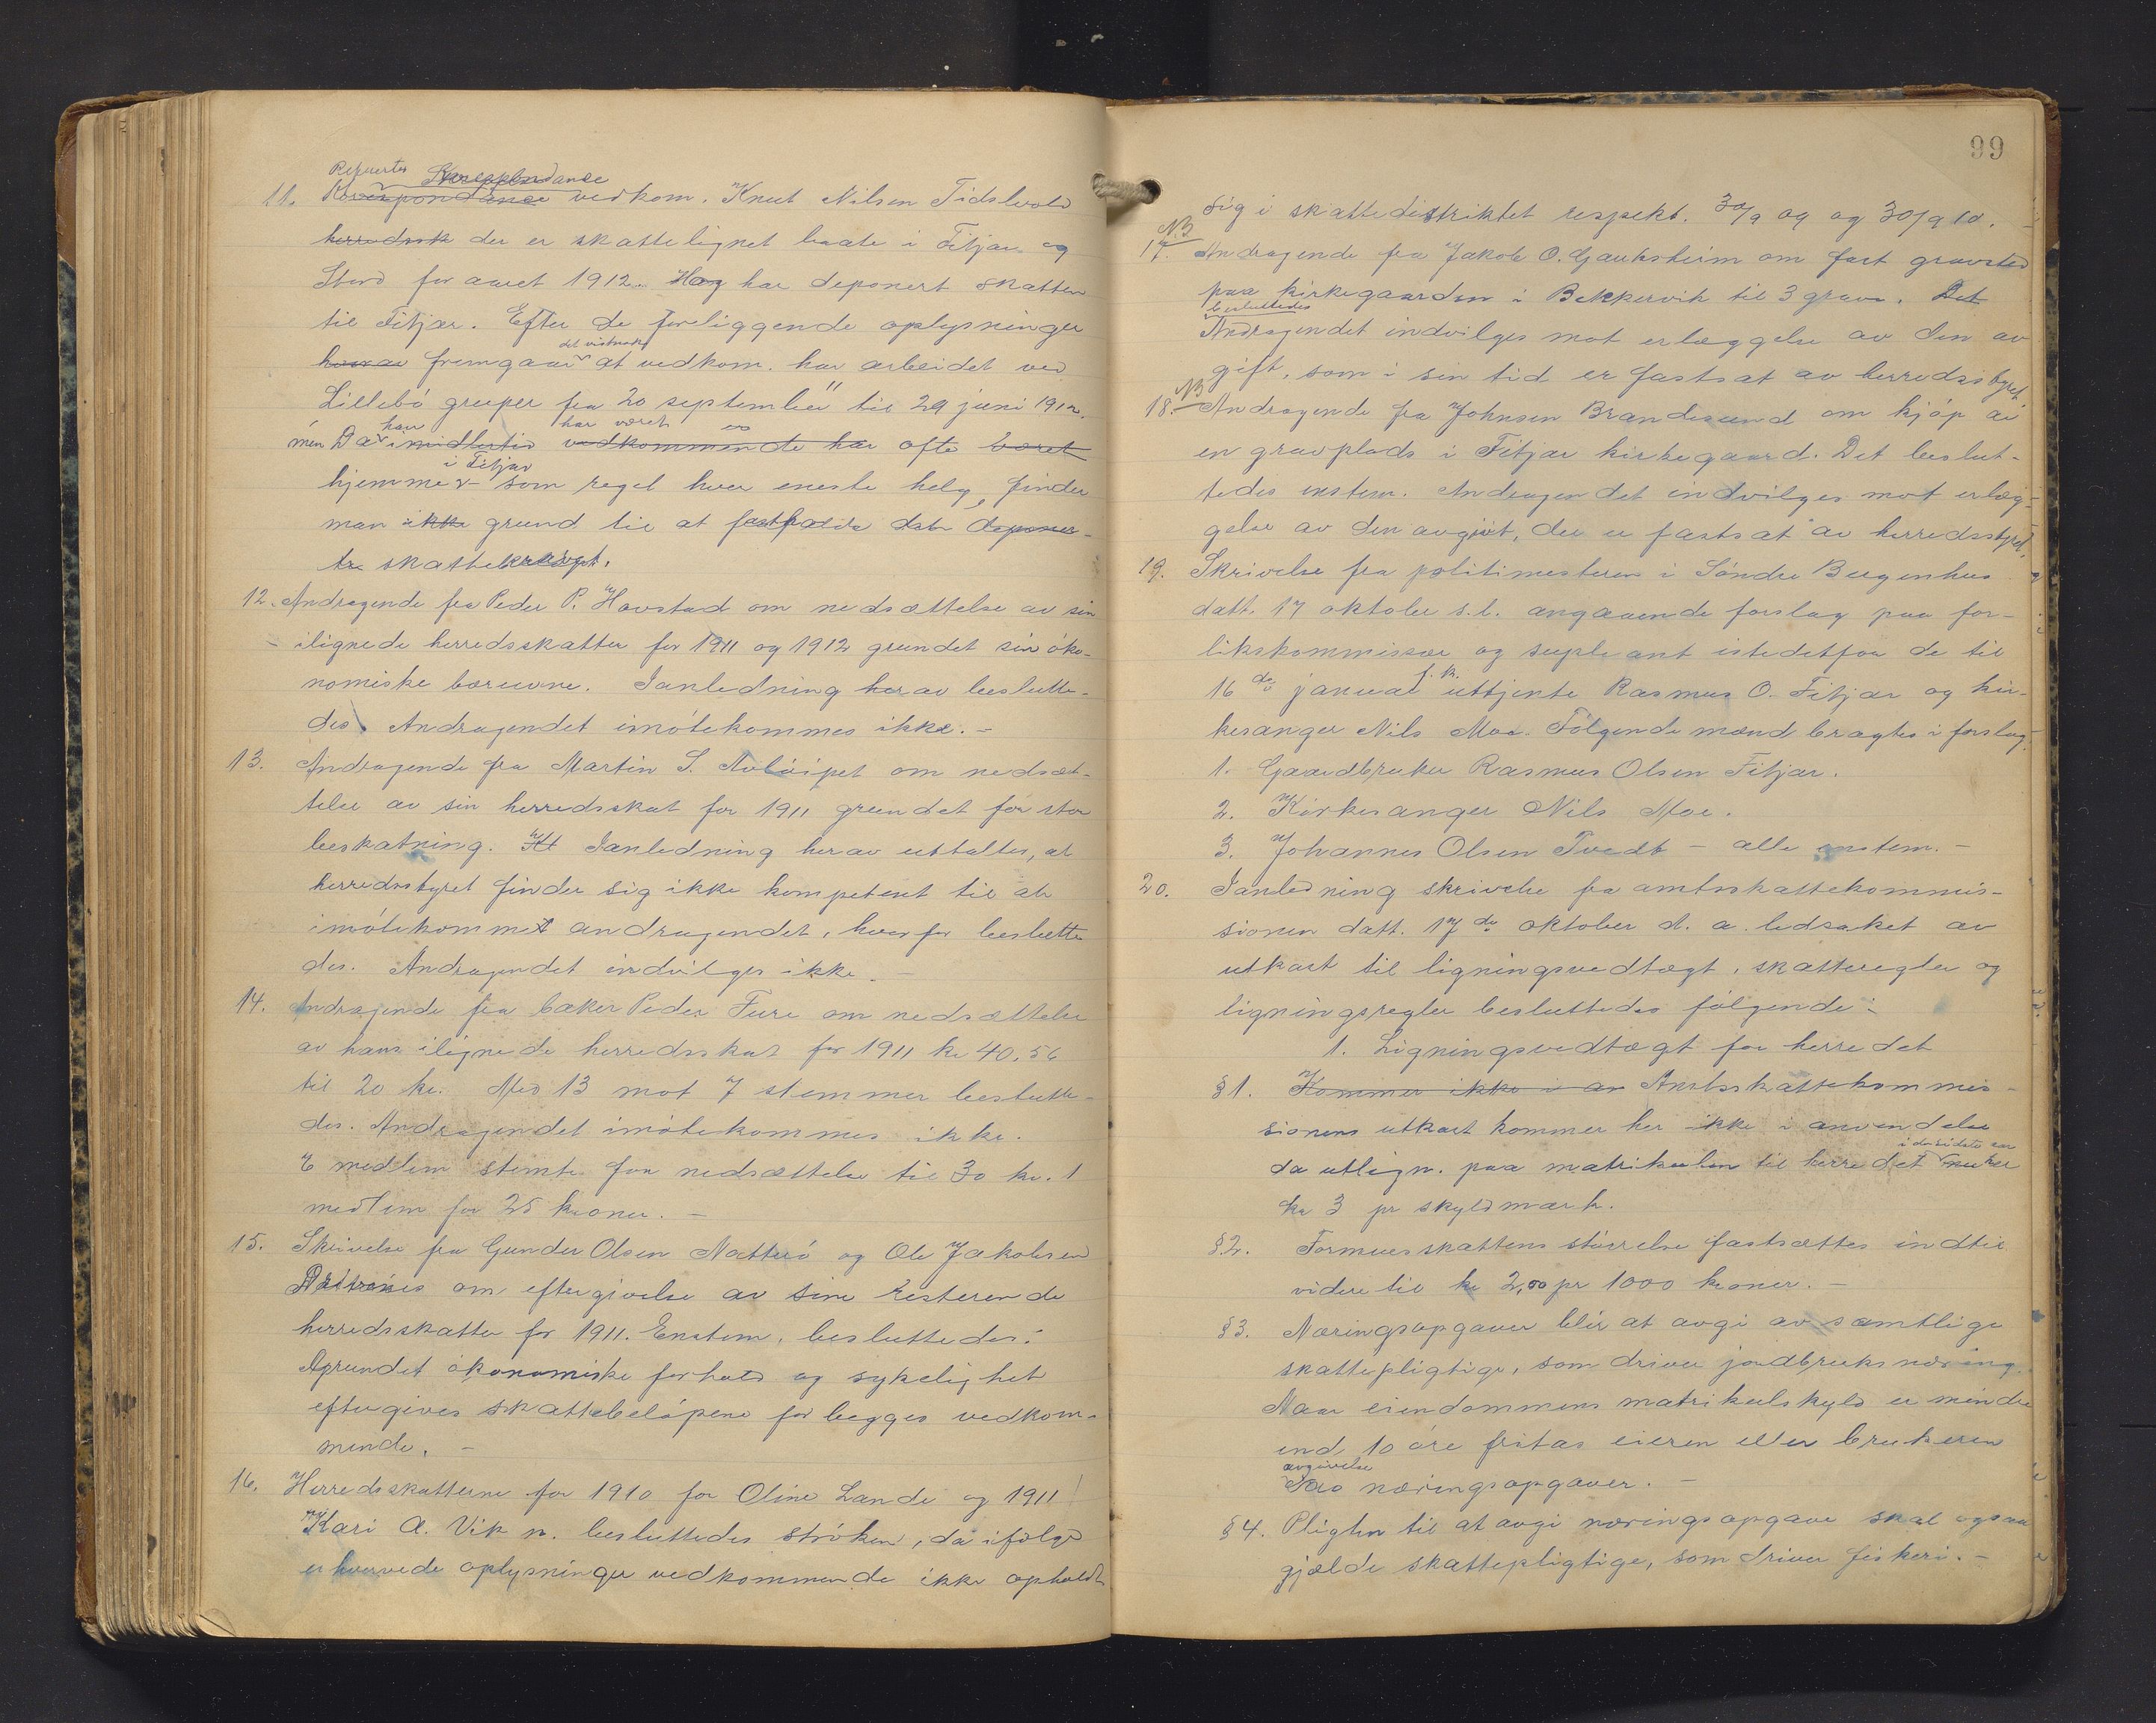 11. Korrespondance vedkom. Knut Nilsen Tidslevold
herredssk der er skattelignet baate i Fitjar og
Stord for aaret 1912. Han har deponert skatten
til Fitjar. Efter de foreliggende oplysninger
fremgaar det at vedkom. har arbeidet ved
Lillebö gruper fra 20 september 11 til 29 juni 1912.
men Da han imidlertid har været vedkommende har ofte været
hjemme i Fitjar som regel hver eneste helg, finder
man ikke grund til at fastholde den deponer-
te skatte
12. Andragende fra Peder P. Havstad om nedsættelse av sin
ilignede herredsskatter for 1911 og 1912 grundet sin öko-
nomiske bæreevne. Ianledning herav beslutte-
des. Andragendet imötekommes ikke. -
13. Andragende fra Martin S. Aulöipet om nedsæt-
telse av sin herredsskat for 1911 grundet for stor
beskatning. Ianledning herav uttaltes, at
herredsstyret finder sig ikke kompetent til at
imötekomme andragendet, hvorfor beslutte-
des. Andragendet indvilges ikke. -
14. Andragende fra baker Peder Fure om nedsættelse
av hans ilignede herredsskat for 1911 kr 40.56
til 20 kr. Med 13 mot 7 stemmer beslutte-
des. Andragendet imötekommes ikke.
6 medlem stemte for nedsættelse til 30 kr. 1
medlem for 25 kroner. -
15. Skrivelse fra Gunder Olsen Natterö og Ole Jakobsen
om eftergivelse av sine resterende
herredsskatter for 1911. Enstem. besluttedes:
Agrundet ökonomiske forhold og sykelighet
eftergives skattebelöpene for begges vedkom-
mende. -
16. Herredsskatterne for 1910 for Oline Lande og 1911
Kari A. Vik n. besluttedes ströken, da ifölge
erhvervede oplysninger vedkommende ikke opholdt
99
sig i skattedistriktet respekt. 30/9 09 og 30/9 10.
NB
17. Andragende fra Jakob O. Gauksheim om fast gravsted
paa kirkegaarden i Bekkervik til 3 grave. Det
besluttedes
Andragendet indvilges mot erlæggelse av den av
gift, som i sin tid er fastsat av herredsstyret
NB
18. Andragende fra Johnsen Brandesund om kjöp av
en gravplads i Fitjar kirkegaard. Det beslut-
tedes enstem. Andragendet indvilges mot erlæg-
gelse av den avgivt, der er fastsat av herredsstyret.
19. Skrivelse fra politimesteren i Söndre Bergenhus
datt. 17 oktober s.l. angaaende forslag paa for-
likskommissær og supleant istedetfor de til
16 de januar f. k. uttjente Rasmus O. Fitjar og kir-
kesanger Nils Moe. Fölgende mænd bragtes i forslag
1. Gaardbruker Rasmus Olsen Fitjar.
2. Kirkesanger Nils Moe.
3. Johannes Olsen Tvedt - alle enstem. -
20. Ianledning skrivelse fra amtsskattekommis-
sionen datt. 17 de oktober d. a. ledsaket av
utkast til ligningsvedtægt, skatteregler og
ligningsregler besluttedes fölgende:
1. Ligningsvedtægt for herredet
§ 1. Kommer ikke i an Amtsskattekommis-
sionens utkast kommer her ikke i anvendelse
da utlign. paa matrikulen til herredet
kr 3 pr skyldmark.
§ 2. Formuesskattens störrelse fastsættes indtil
videre til kr 2,00 pr 1000 kroner. -
§ 3. Næringsopgaver blir at avgi av samtlige
skattepligtige, som driver jordbruksnæring.
Naar eiendommens matrikulskyld er mindre
end 10 öre fritas eieren eller brukeren
avgivelse
næringsopgaver. -
§ 4. Pligten til at avgi næringsopgave skal ogsaa
gjælde skattepligtige, som driver fiskeri. -